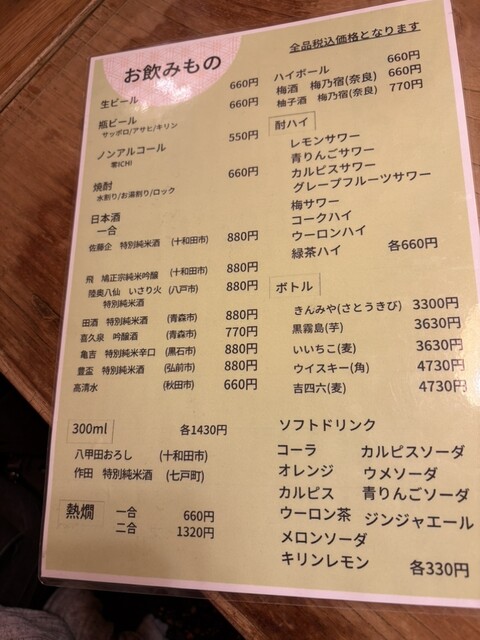 お飲みもの
全品税込価格となります
生ビール 660円
瓶ビール 660円
サッポロ/アサヒ/キリン
ノンアルコール 550円
零ICHI
焼酎 660円
水割り/お湯割り/ロック
日本酒
一合
佐藤企 特別純米酒 (十和田市) 880円
飛 鳩正宗純米吟醸 (十和田市) 880円
陸奥八仙 いさり火 (八戸市) 880円
特別純米酒
田酒 特別純米酒 (青森市) 880円
喜久泉 吟醸酒 (青森市) 770円
亀吉 特別純米辛口 (黒石市) 880円
豊盃 特別純米酒 (弘前市) 880円
高清水 (秋田市) 660円
300ml 各1430円
八甲田おろし (十和田市)
作田 特別純米酒 (七戸町)
熱燗 一合 660円
二合 1320円
ハイボール 660円
梅酒 梅乃宿(奈良) 660円
柚子酒 梅乃宿(奈良) 770円
酎ハイ
レモンサワー
青りんごサワー
カルピスサワー
グレープフルーツサワー
梅サワー
コークハイ
ウーロンハイ
緑茶ハイ 各660円
ボトル
きんみや(さとうきび) 3300円
黒霧島(芋) 3630円
いいちこ(麦) 3630円
ウイスキー(角) 4730円
吉四六(麦) 4730円
ソフトドリンク
コーラ カルピスソーダ
オレンジ ウメソーダ
カルピス 青りんごソーダ
ウーロン茶 ジンジャエール
メロンソーダ
キリンレモン 各330円